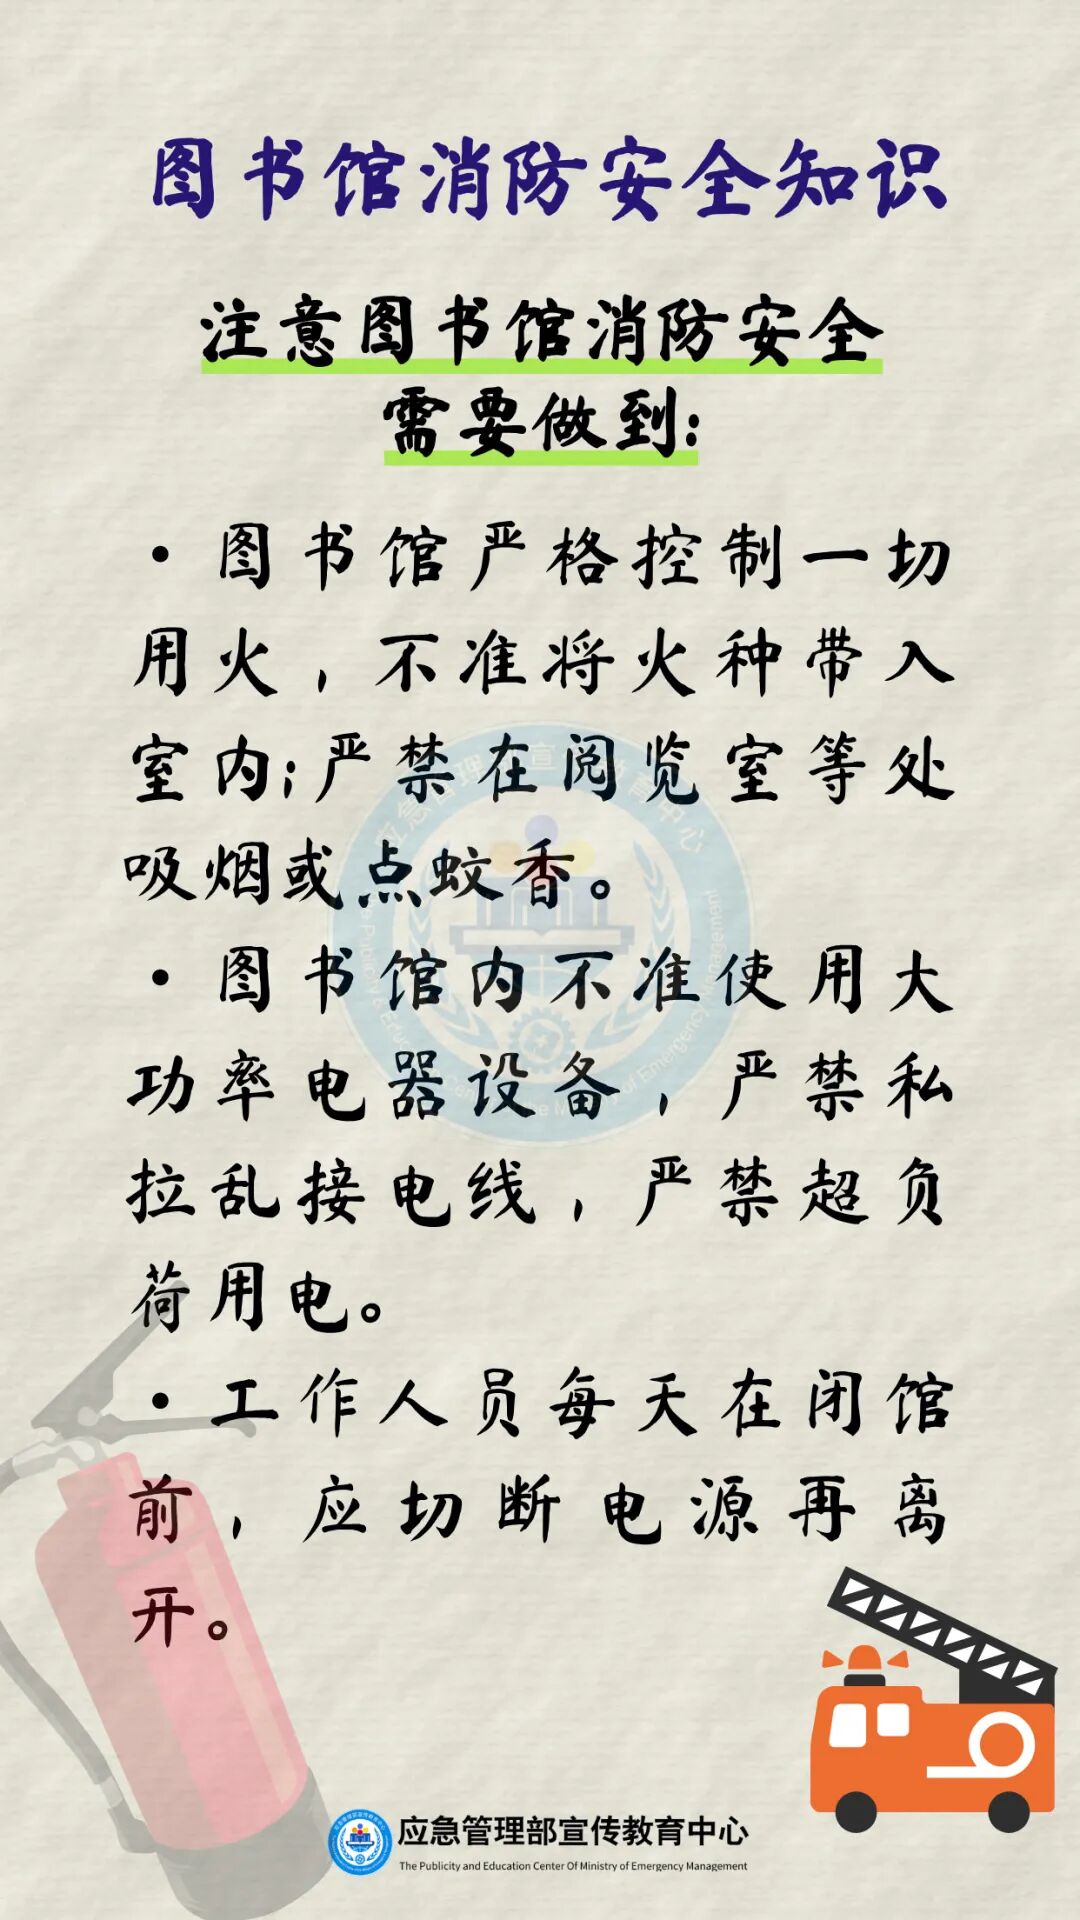 图书馆消防安全知识
注意图书馆消防安全
需要做到:
·图书馆严格控制一切
用火，不准将火种带入
室内;严禁在阅览室等处
吸烟或点蚊香。
·图书馆内不准使用大
功率电器设备，严禁私
拉乱接电线，严禁超负
荷用电。
·工作人员每天在闭馆
前，应切断电源再离
开。
应急管理部宣传教育中心
The Publicity and Education Center Of Ministry of Emergency Management